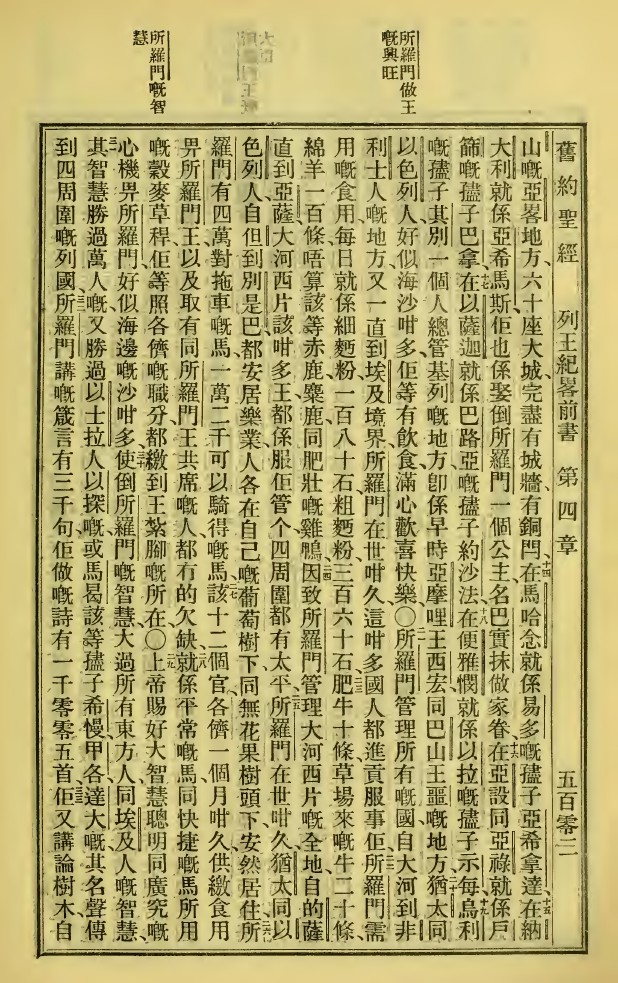 所羅門做王
嘅興旺
所羅門嘅智
慧
舊約聖經 列王紀畧前書 第四章 五百零二
山嘅亞畧地方、六十座大城、完盡有城牆有銅門、十四在馬哈念就係易多嘅孻子亞希拿達、十五在納
大利就係亞希馬斯、佢也係娶倒所羅門一個公主名巴實抹做家眷、十六在亞設同亞祿就係戶
篩嘅孻子巴拿、十七在以薩迦就係巴路亞嘅孻子約沙法、十八在便雅憫就係以拉嘅孻子示每、十九烏利
嘅孻子其別一個人總管基列嘅地方、卽係早時亞摩哩王西宏同巴山王噩嘅地方、二十猶太同
以色列人好似海沙咁多、佢等有飲食、滿心歡喜快樂、〇二一所羅門管理所有嘅國自大河到非
利士人嘅地方、又一直到埃及境界、所羅門在世咁久、這咁多國人都進貢服事佢、二二所羅門需
用嘅食用、每日就係細麪粉一百八十石、粗麪粉三百六十石、二三肥牛十條、草場來嘅牛二十條、
綿羊一百條、唔算該等赤鹿、麋鹿、同肥壯嘅雞鴨、二四因致所羅門管理大河西片嘅全地、自的薩
直到亞薩、大河西片該咁多王都係服佢管、个四周圍都有太平、二五所羅門在世咁久、猶太同以
色列人、自但到別是巴、都安居樂業、人各在自己嘅葡萄樹下、同無花果樹頭下、安然居住、二六所
羅門有四萬對拖車嘅馬、一萬二千可以騎得嘅馬、二七該十二個官、各儕一個月咁久供繳食用
畀所羅門王、以及取有同所羅門王共席嘅人、都冇的欠缺、二八就係平常嘅馬、同快捷嘅馬、所用
嘅穀麥草稈、佢等照各儕嘅職分、都繳到王紮腳嘅所在、〇二九上帝賜好大智慧聰明、同廣究嘅
心機、畀所羅門、好似海邊嘅沙咁多、三十使倒所羅門嘅智慧、大過所有東方人、同埃及人嘅智慧、
三一其智慧勝過萬人嘅、又勝過以士拉人以探嘅、或馬曷該等孻子希慢、甲各、達大嘅、其名聲傳
到四周圍嘅列國、三二所羅門講嘅箴言有三千句、佢做嘅詩有一千零零五首、三三佢又講論樹木、自